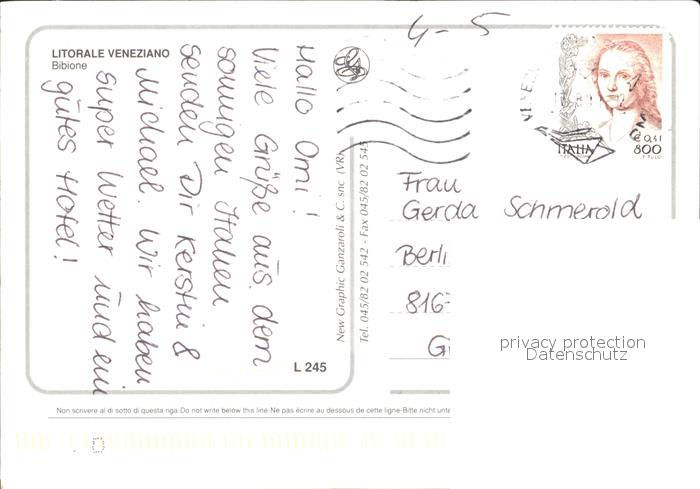 4-5
LITORALE VENEZIANO
Bibione
Hallo Omi!
Viele Grüße aus dem
sonnigen Italien
senden Dir Kerstin &
Michael. Wir haben
super Wetter und ein
gutes Hotel!
L 245
New Graphic Ganzaroli & C. snc (VR)
Tel. 045/82 02 542 - Fax 045/82 02 545
ITALIA
€ 0,41
800
Frau
Gerda Schmerold
Berli
816
G
privacy protection
Datenschutz
Non scrivere al di sotto di questa riga-Do not write below this line-Ne pas écrire au dessous de cette ligne-Bitte nicht unte